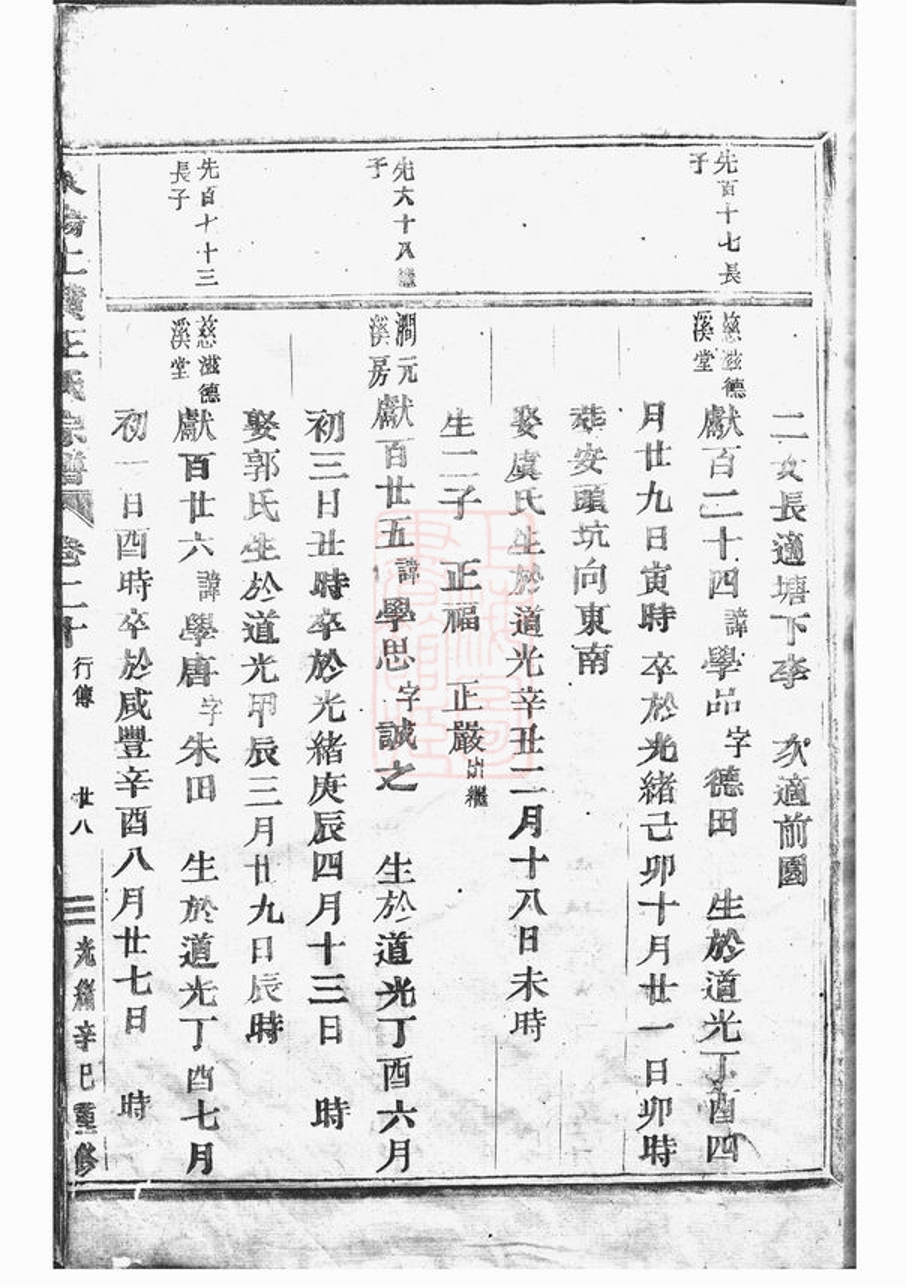 二女長適塘下李 次適前園
先百十七長
子
慈溪滋德堂
獻百二十四諱學品字德田 生於道光丁酉四
月廿九日寅時 卒於光緒己卯十月廿一日卯時
葬安頭坑向東南
娶虞氏生於道光辛丑二月十八日未時
生二子 正福 正嚴出繼
先六十八繼
子
澗溪元房
獻百廿五諱學思字誠之 生於道光丁酉六月
初三日丑時卒於光緒庚辰四月十三日 時
娶郭氏生於道光甲辰三月廿九日辰時
先百七十三
長子
慈溪滋德堂
獻百廿六諱學唐字朱田 生於道光丁酉七月
初一日酉時卒於咸豐辛酉八月廿七日 時
王氏宗譜 卷二十 行傳 廿八 光緒辛巳重修